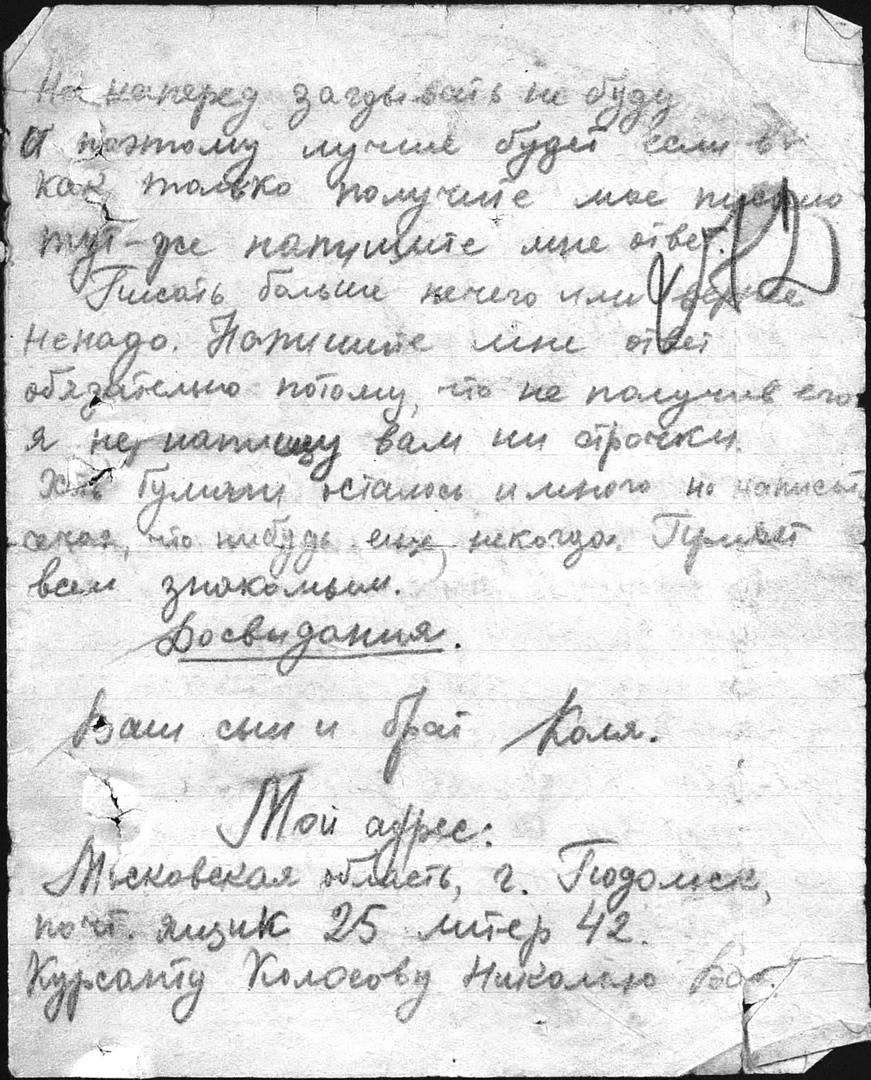 Но наперед загадывать не буду
а поэтому лучше будет если вы
как только получите мое письмо
тут-же напишите мне ответ.
Писать больше нечего или вернее
ненадо. Напишите мне ответ
обязательно потому, что не получив его
я не напишу вам ни строчки.
Хоть бумаги осталось и много но написать
что нибудь еще, некогда. Привет
всем знакомым.
Досвидания.
Ваш сын и брат Коля.
Мой адрес:
Московская область, г. Подольск,
почт. ящик 25 литер 42.
Курсанту Колосову Николаю Вас.